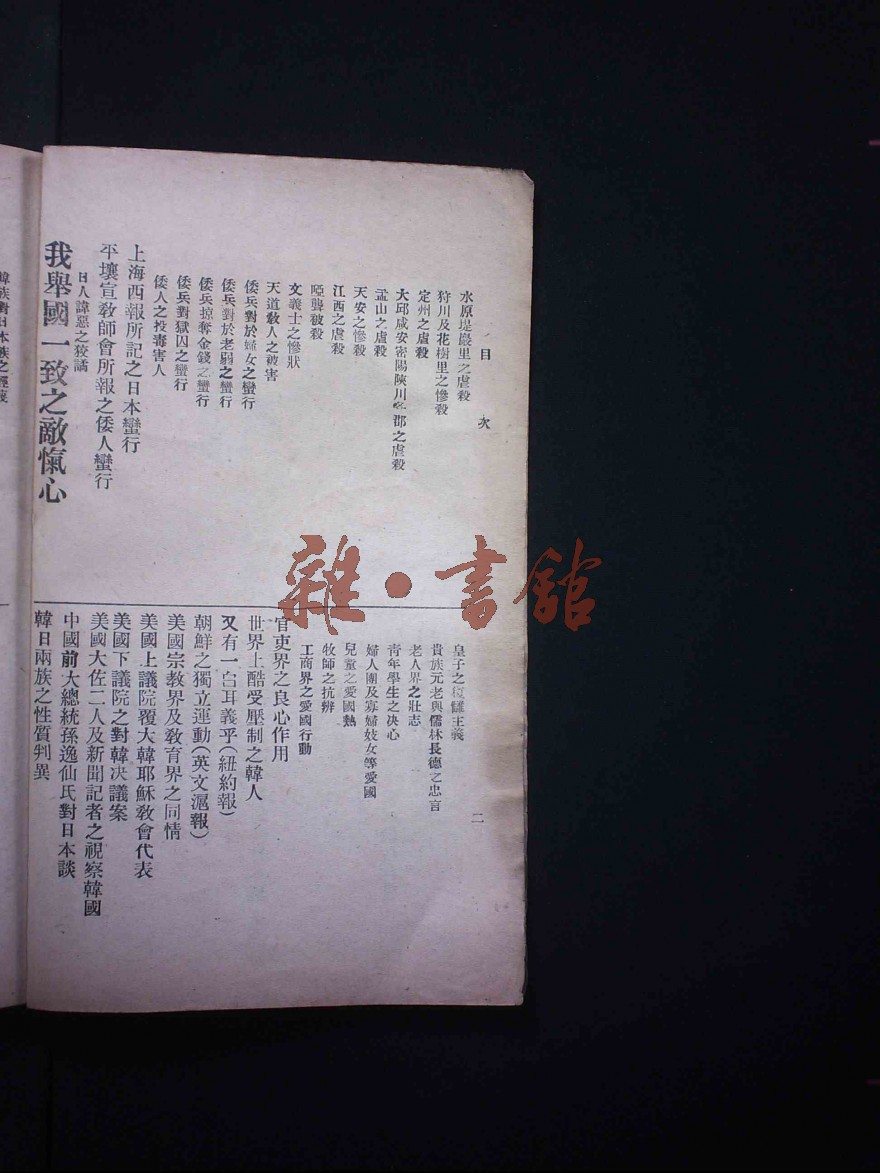 目次
水原堤巖里之虐殺
狩川及花樹里之慘殺
定州之虐殺
大邱咸安密陽陜川等郡之虐殺
孟山之虐殺
天安之慘殺
江西之虐殺
啞聾被殺
文義士之慘狀
天道敎人之被害
倭兵對於婦女之蠻行
倭兵對於老弱之蠻行
倭兵掠奪金錢之蠻行
倭兵對獄囚之蠻行
倭人之投毒害人
上海西報所記之日本蠻行
平壤宣敎師會所報之倭人蠻行
日人諱惡之狡譎
我舉國一致之敵愾心
皇子之復讎主義
貴族元老與儒林長德之忠言
老人界之壯志
靑年學生之決心
婦人團及寡婦妓女等愛國
兒童之愛國熱
牧師之抗辨
工商界之愛國行動
官吏界之良心作用
世界上酷受壓制之韓人
又有一白耳義乎(紐約報)
朝鮮之獨立運動(英文滬報)
美國宗教界及敎育界之同情
美國上議院覆大韓耶穌敎會代表
美國下議院之對韓决議案
美國大佐二人及新聞記者之視察韓國
中國前大總統孫逸仙氏對日本談
韓日兩族之性質判異
二
韓族對日本族之
雜·書館